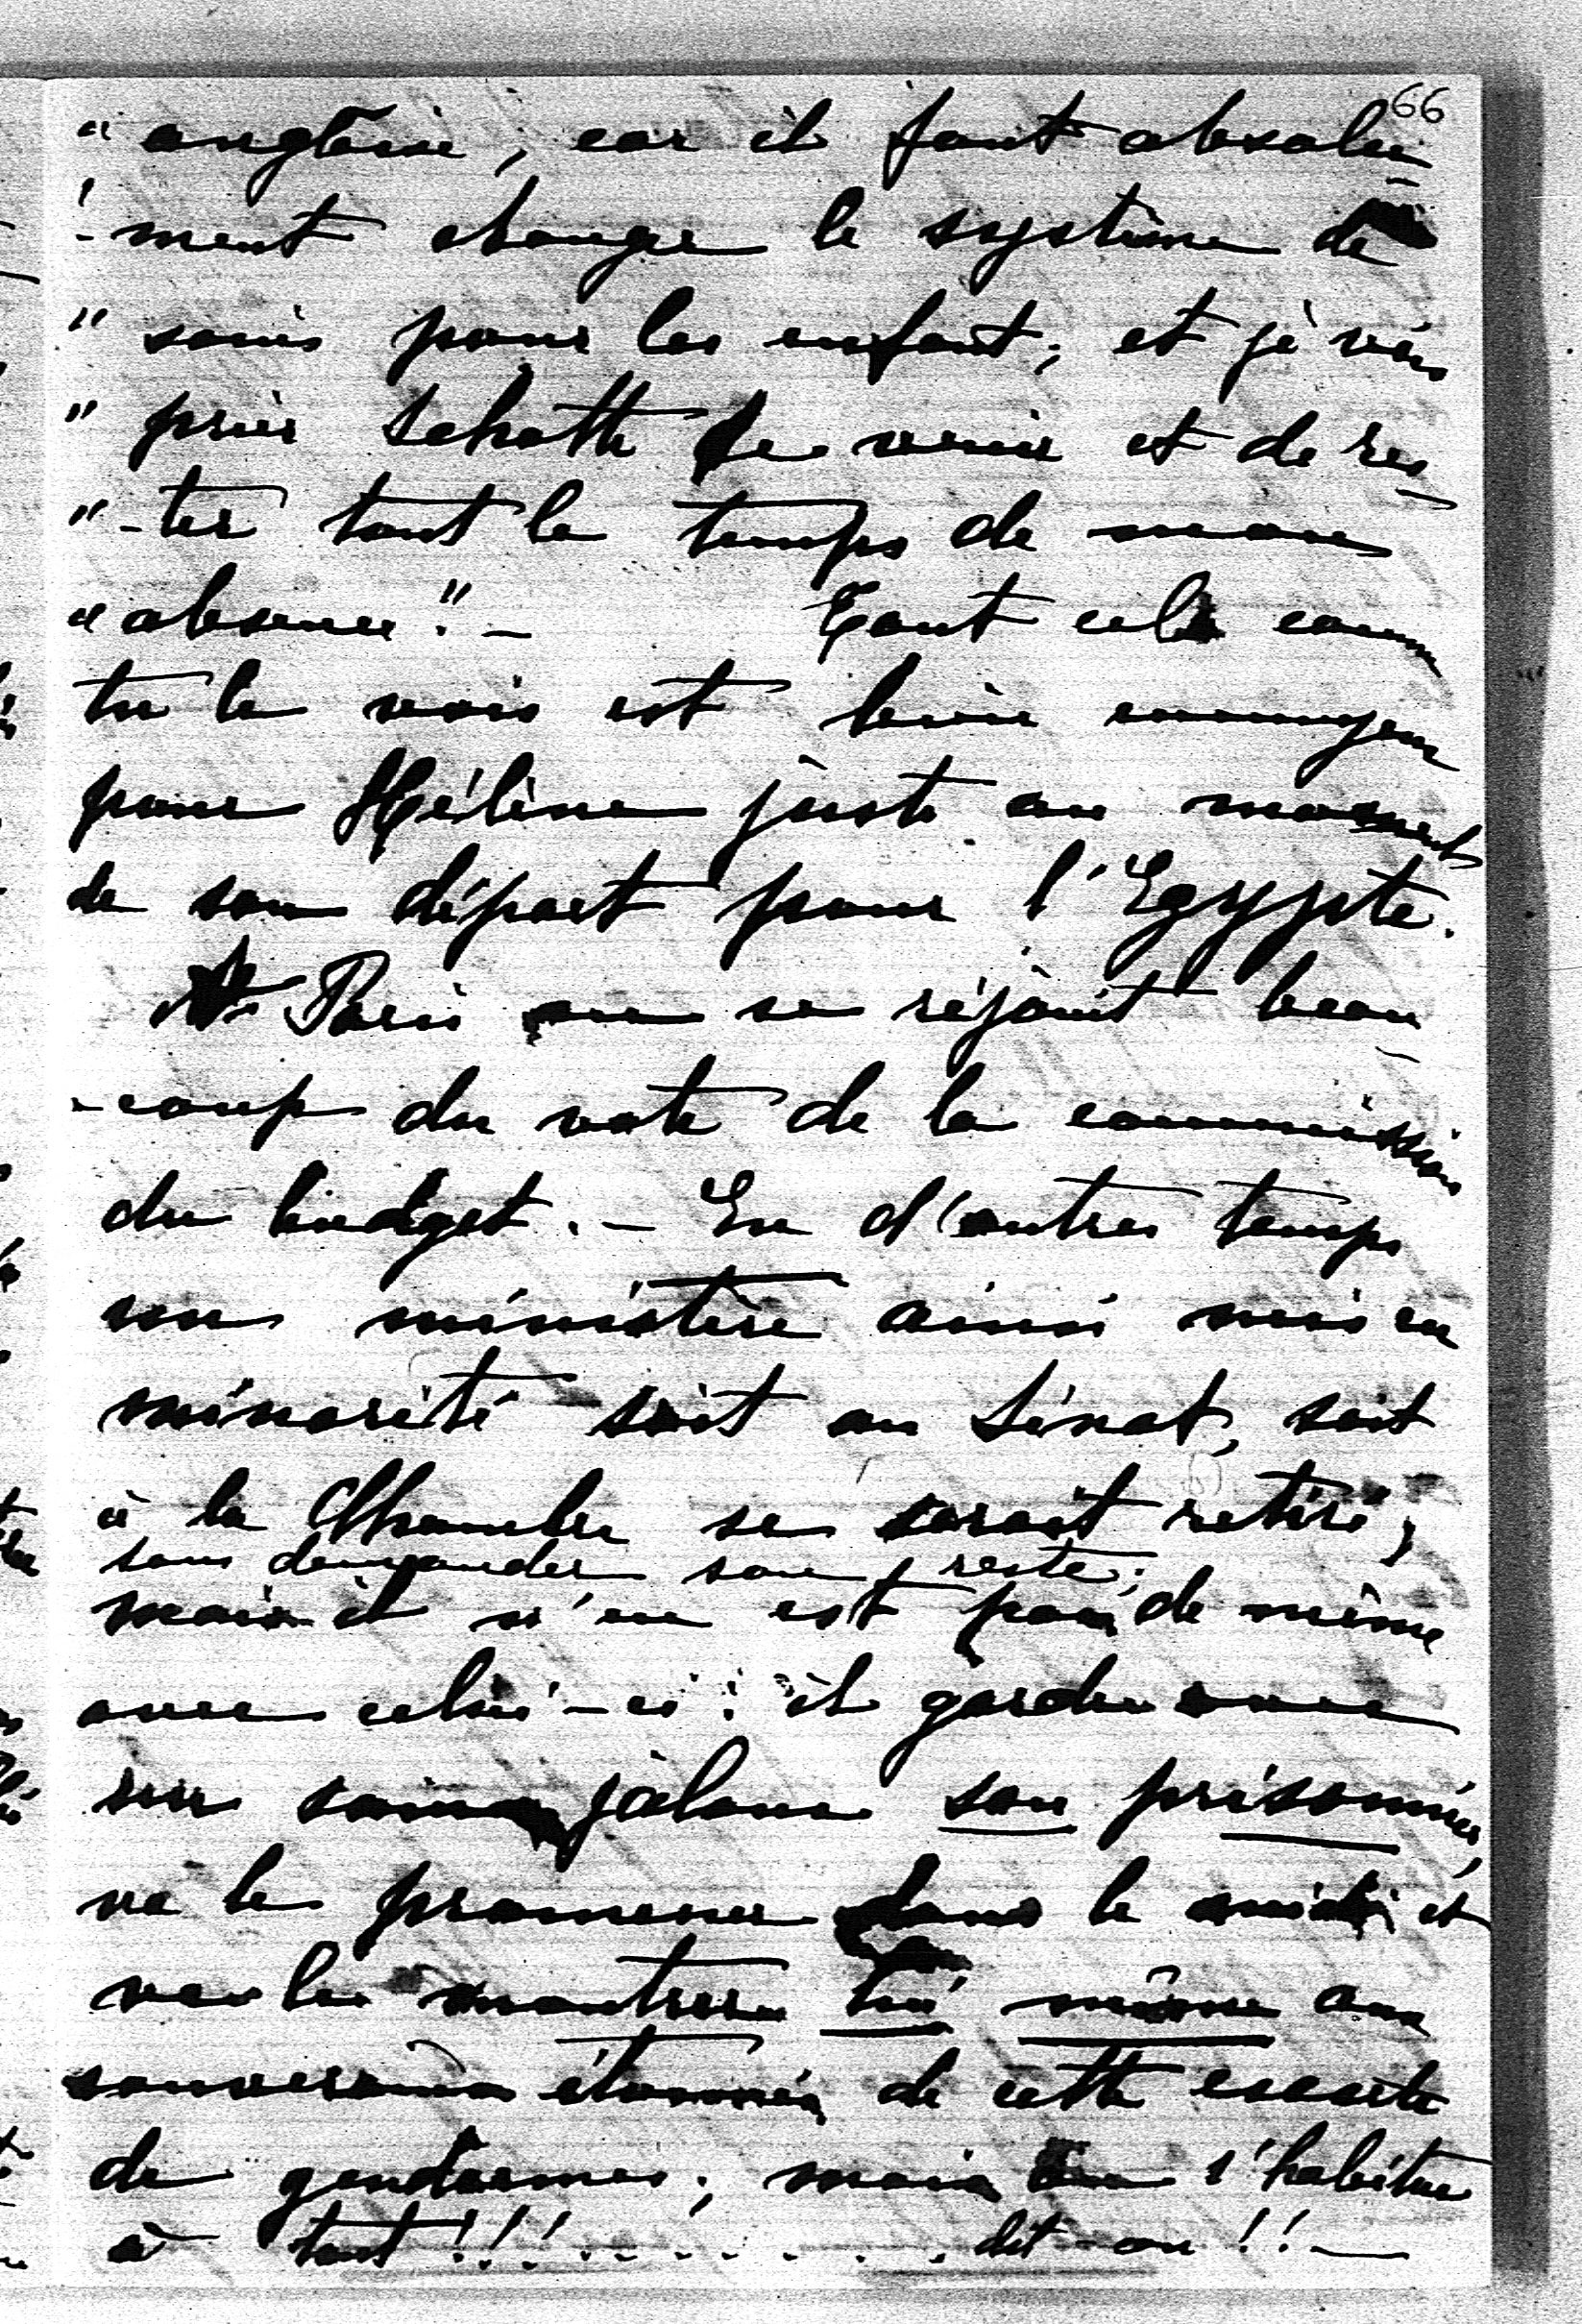 66
" anglaise, car il faut absolu-
"-ment changer le système de
" soins pour les enfant; et je vais
" prier Schotte de venir et de res-
"-ter tout le temps de mon
" absence." — Tout cela comme
tu le vois est bien ennuyeux
pour Hélène juste au moment
de son départ pour l'Egypte.
A Paris on se réjouit beau
-coup du vote de la commission
du budget. — En d'autres temps
un ministère ainsi mis en
minorité soit au Sénat, soit
à la Chambre se serait retiré,
sans demander son reste;
mais il n'en est pas de même
avec celui-ci: il garde avec
un soin jaloux son prisonnier,
va le promener dans le midi et
va le montrer lui même aux
souverains étonnés de cette escorte
de gendarmes; mais on s'habitue
à tout!!! . . . . . . . . dit-on!! —